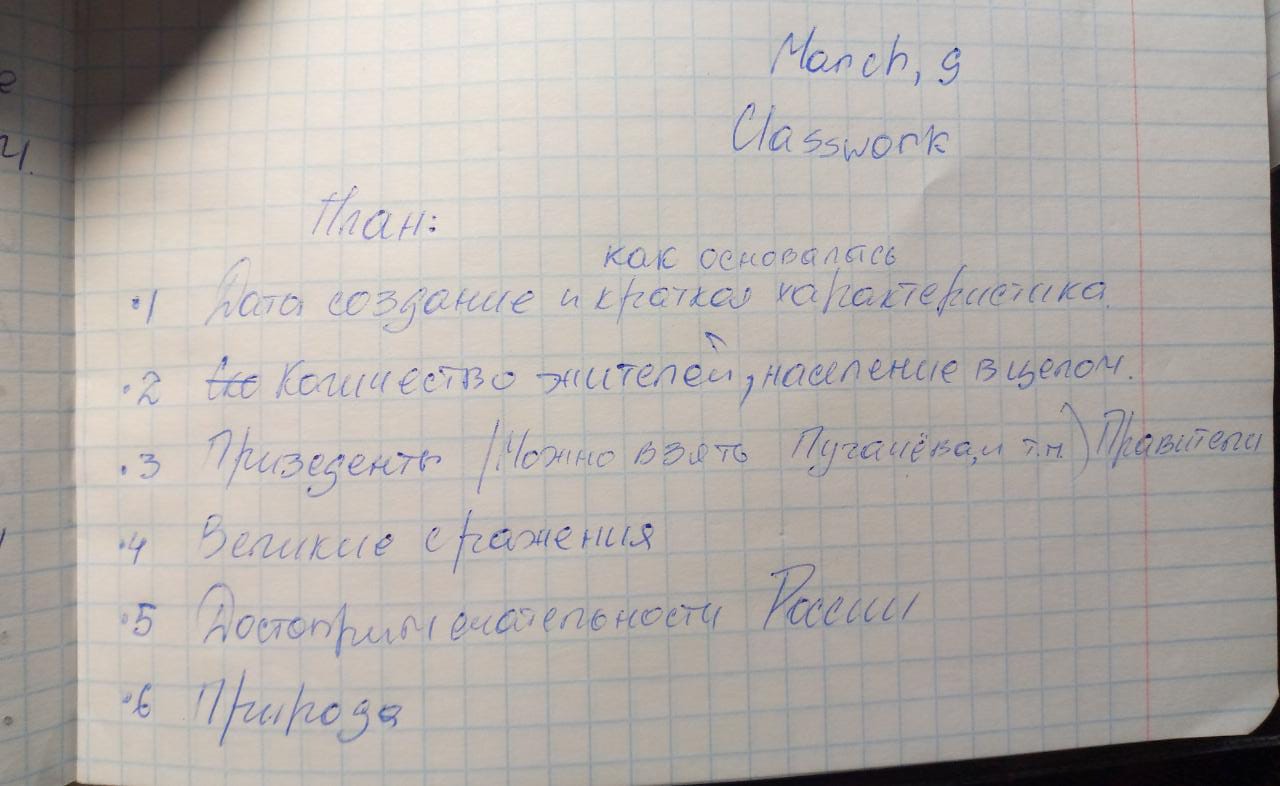 March, 9
Classwork
План:
как основалась
•1 Дата создание и краткая характеристика.
•2 Количество жителей, население в целом.
•3 Призеденты (Можно взять Пугачёва, и т.н) Правители
•4 Великие сражения
•5 Достопримечательности России
•6 Природа